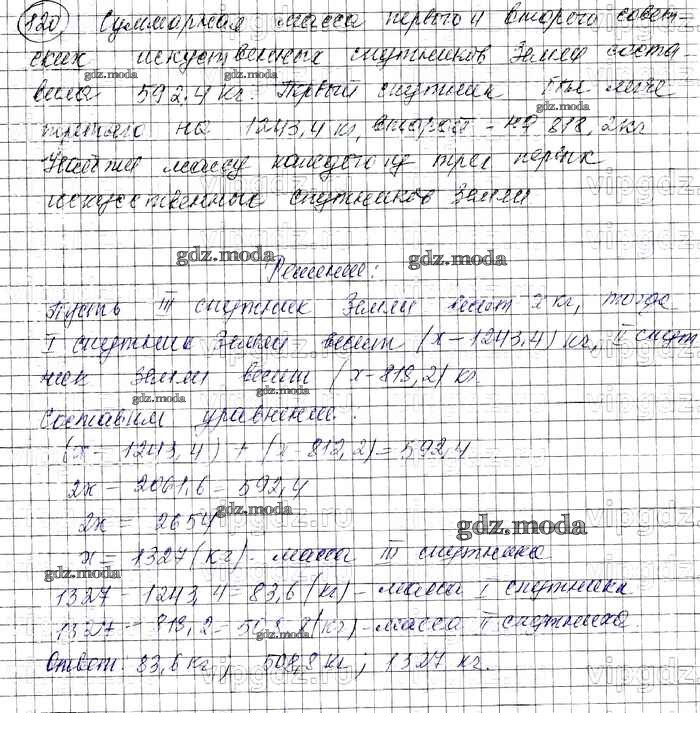 120 Суммарная масса первого и второго совет-
ских искуственных спутников Земли соста
вила 592.4 кг. Первый спутник был легче
третьего на 1243,4 кг, второй - на 818,2кг
Найти массу каждого из трех первых
искусственных спутников Земли
Решение:
Пусть III спутник Земли весит x кг, тогда
I спутник Земли весит (x - 1243,4) кг, II спут
ник Земли весит (x-818,2) кг.
Составим уравнение:
(x - 1243,4) + (x-818,2)=592,4
2x - 2061,6 = 592,4
2x = 2654
x = 1327(кг) - масса III спутника
1327 - 1243,4 = 83,6 (кг) - масса I спутника
1327 - 818,2 = 508,8(кг) - масса II спутника
Ответ 83,6 кг; 508,8 кг; 1327 кг.
gdz.moda
vipgdz.ru